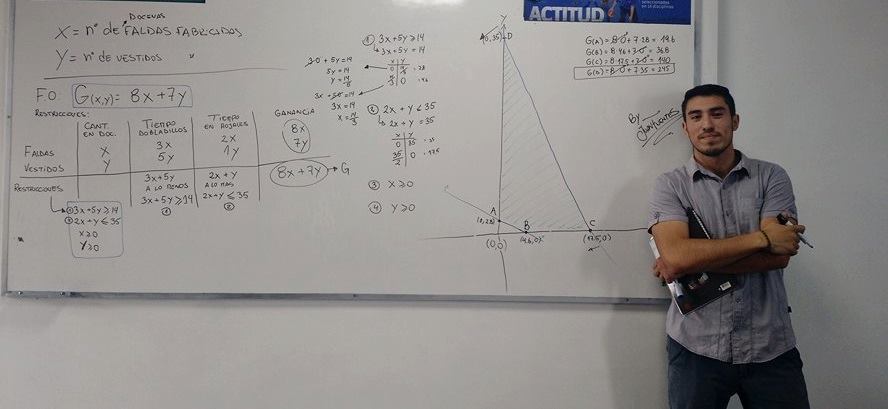 ACTITUD
seleccionados
en 14 disciplinas
DOCENAS
X = nº de FALDAS FABRICADAS
Y = nº de VESTIDOS "
F.O: G(x,y) = 8x+7y
RESTRICCIONES:
CANT. EN DOC. TIEMPO DOBLADILLOS TIEMPO EN ROJALES GANANCIA
FALDAS X 3x 2x 8x
VESTIDOS Y 5y 1y 7y
RESTRICCIONES: 3x+5y 2x+y 8x+7y → G
A LO MENOS A LO MAS
3x+5y ≥ 14 2x+y ≤ 35
① ②
① 3x+5y ≥ 14
② 2x+y ≤ 35
x ≥ 0
y ≥ 0
① 3x+5y ≥ 14
3x+5y = 14
3·0 + 5y = 14
5y = 14
y = 14/5
3x + 5·0 = 14
3x = 14
x = 14/3
x | y
0 | 14/5 = 2.8
14/3 | 0 = 4.6
② 2x + y ≤ 35
2x + y = 35
x | y
0 | 35
35/2 | 0 = 17.5
③ X ≥ 0
④ Y ≥ 0
Y
(0,35) D
A
(0,2.8)
B
(4.6,0)
C
(17.5,0)
(0,0)
G(A) = 8·0 + 7·2.8 = 19.6
G(B) = 8·4.6 + 7·0 = 36.8
G(C) = 8·17.5 + 7·0 = 140
G(D) = 8·0 + 7·35 = 245
By